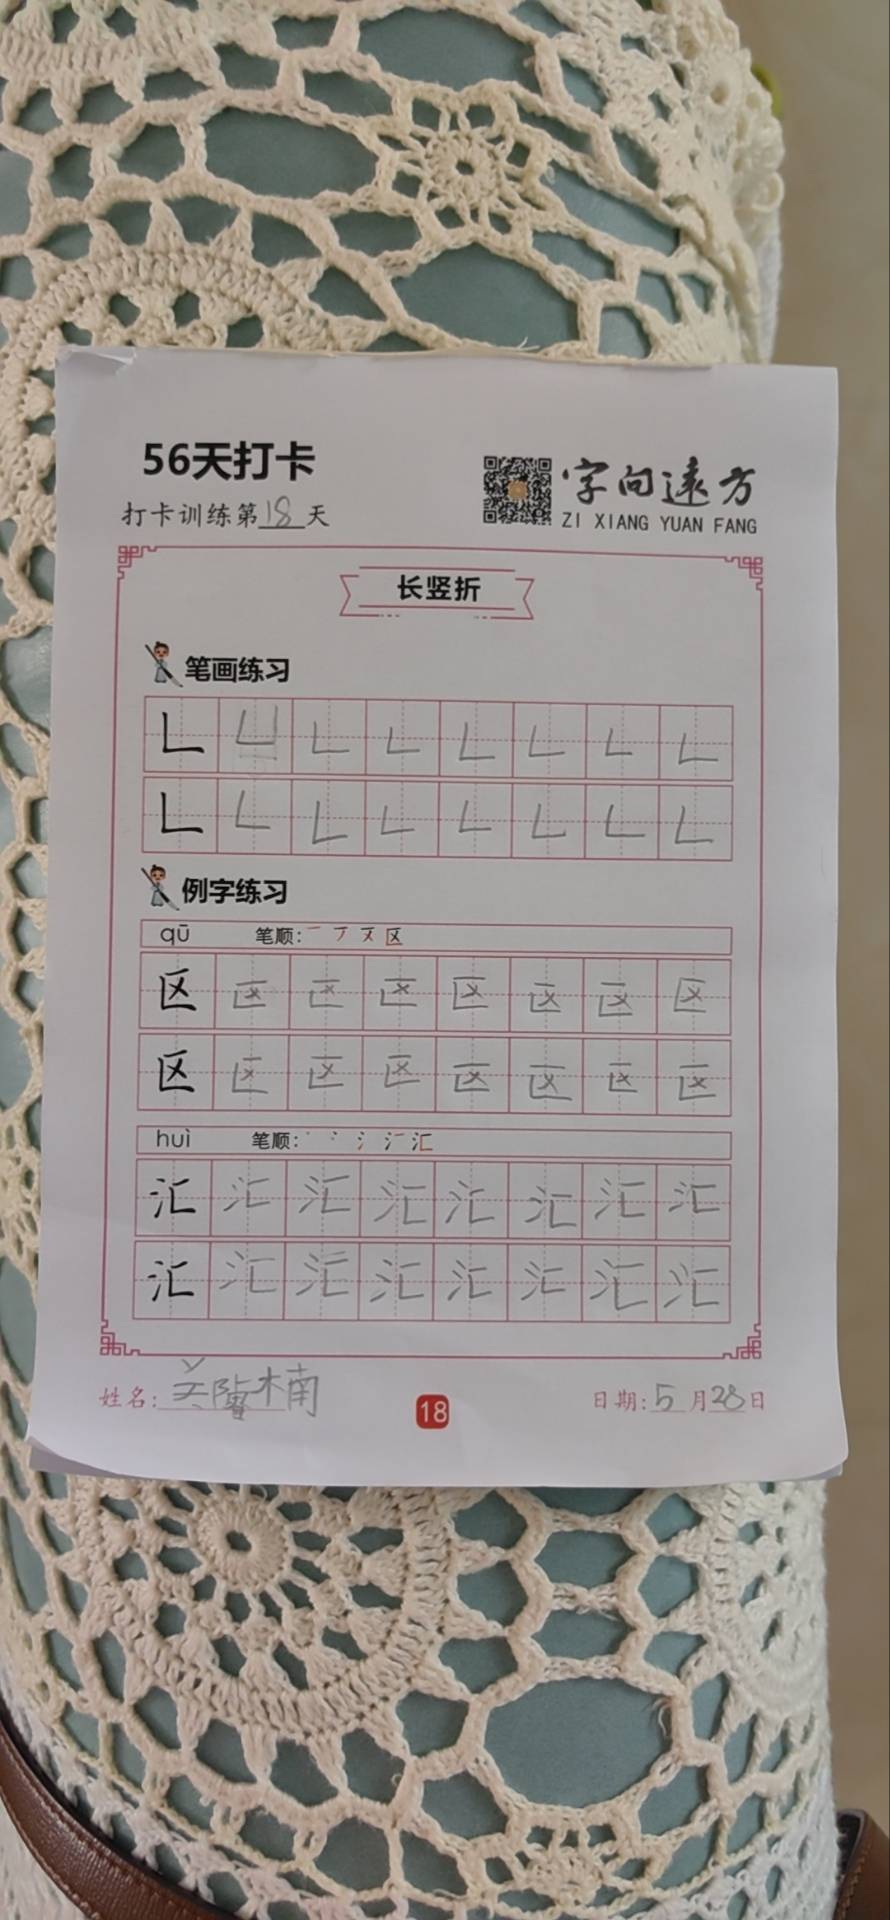 56天打卡
字向远方
打卡训练第18天
ZI XIANG YUAN FANG
长竖折
笔画练习
例字练习
qū 笔顺: 区
区 区 区 区 区 区 区 区
区 区 区 区 区 区 区 区
huì 笔顺: 汇
汇 汇 汇 汇 汇 汇 汇 汇
汇 汇 汇 汇 汇 汇 汇 汇
姓名: 楠
18
日期:5月28日